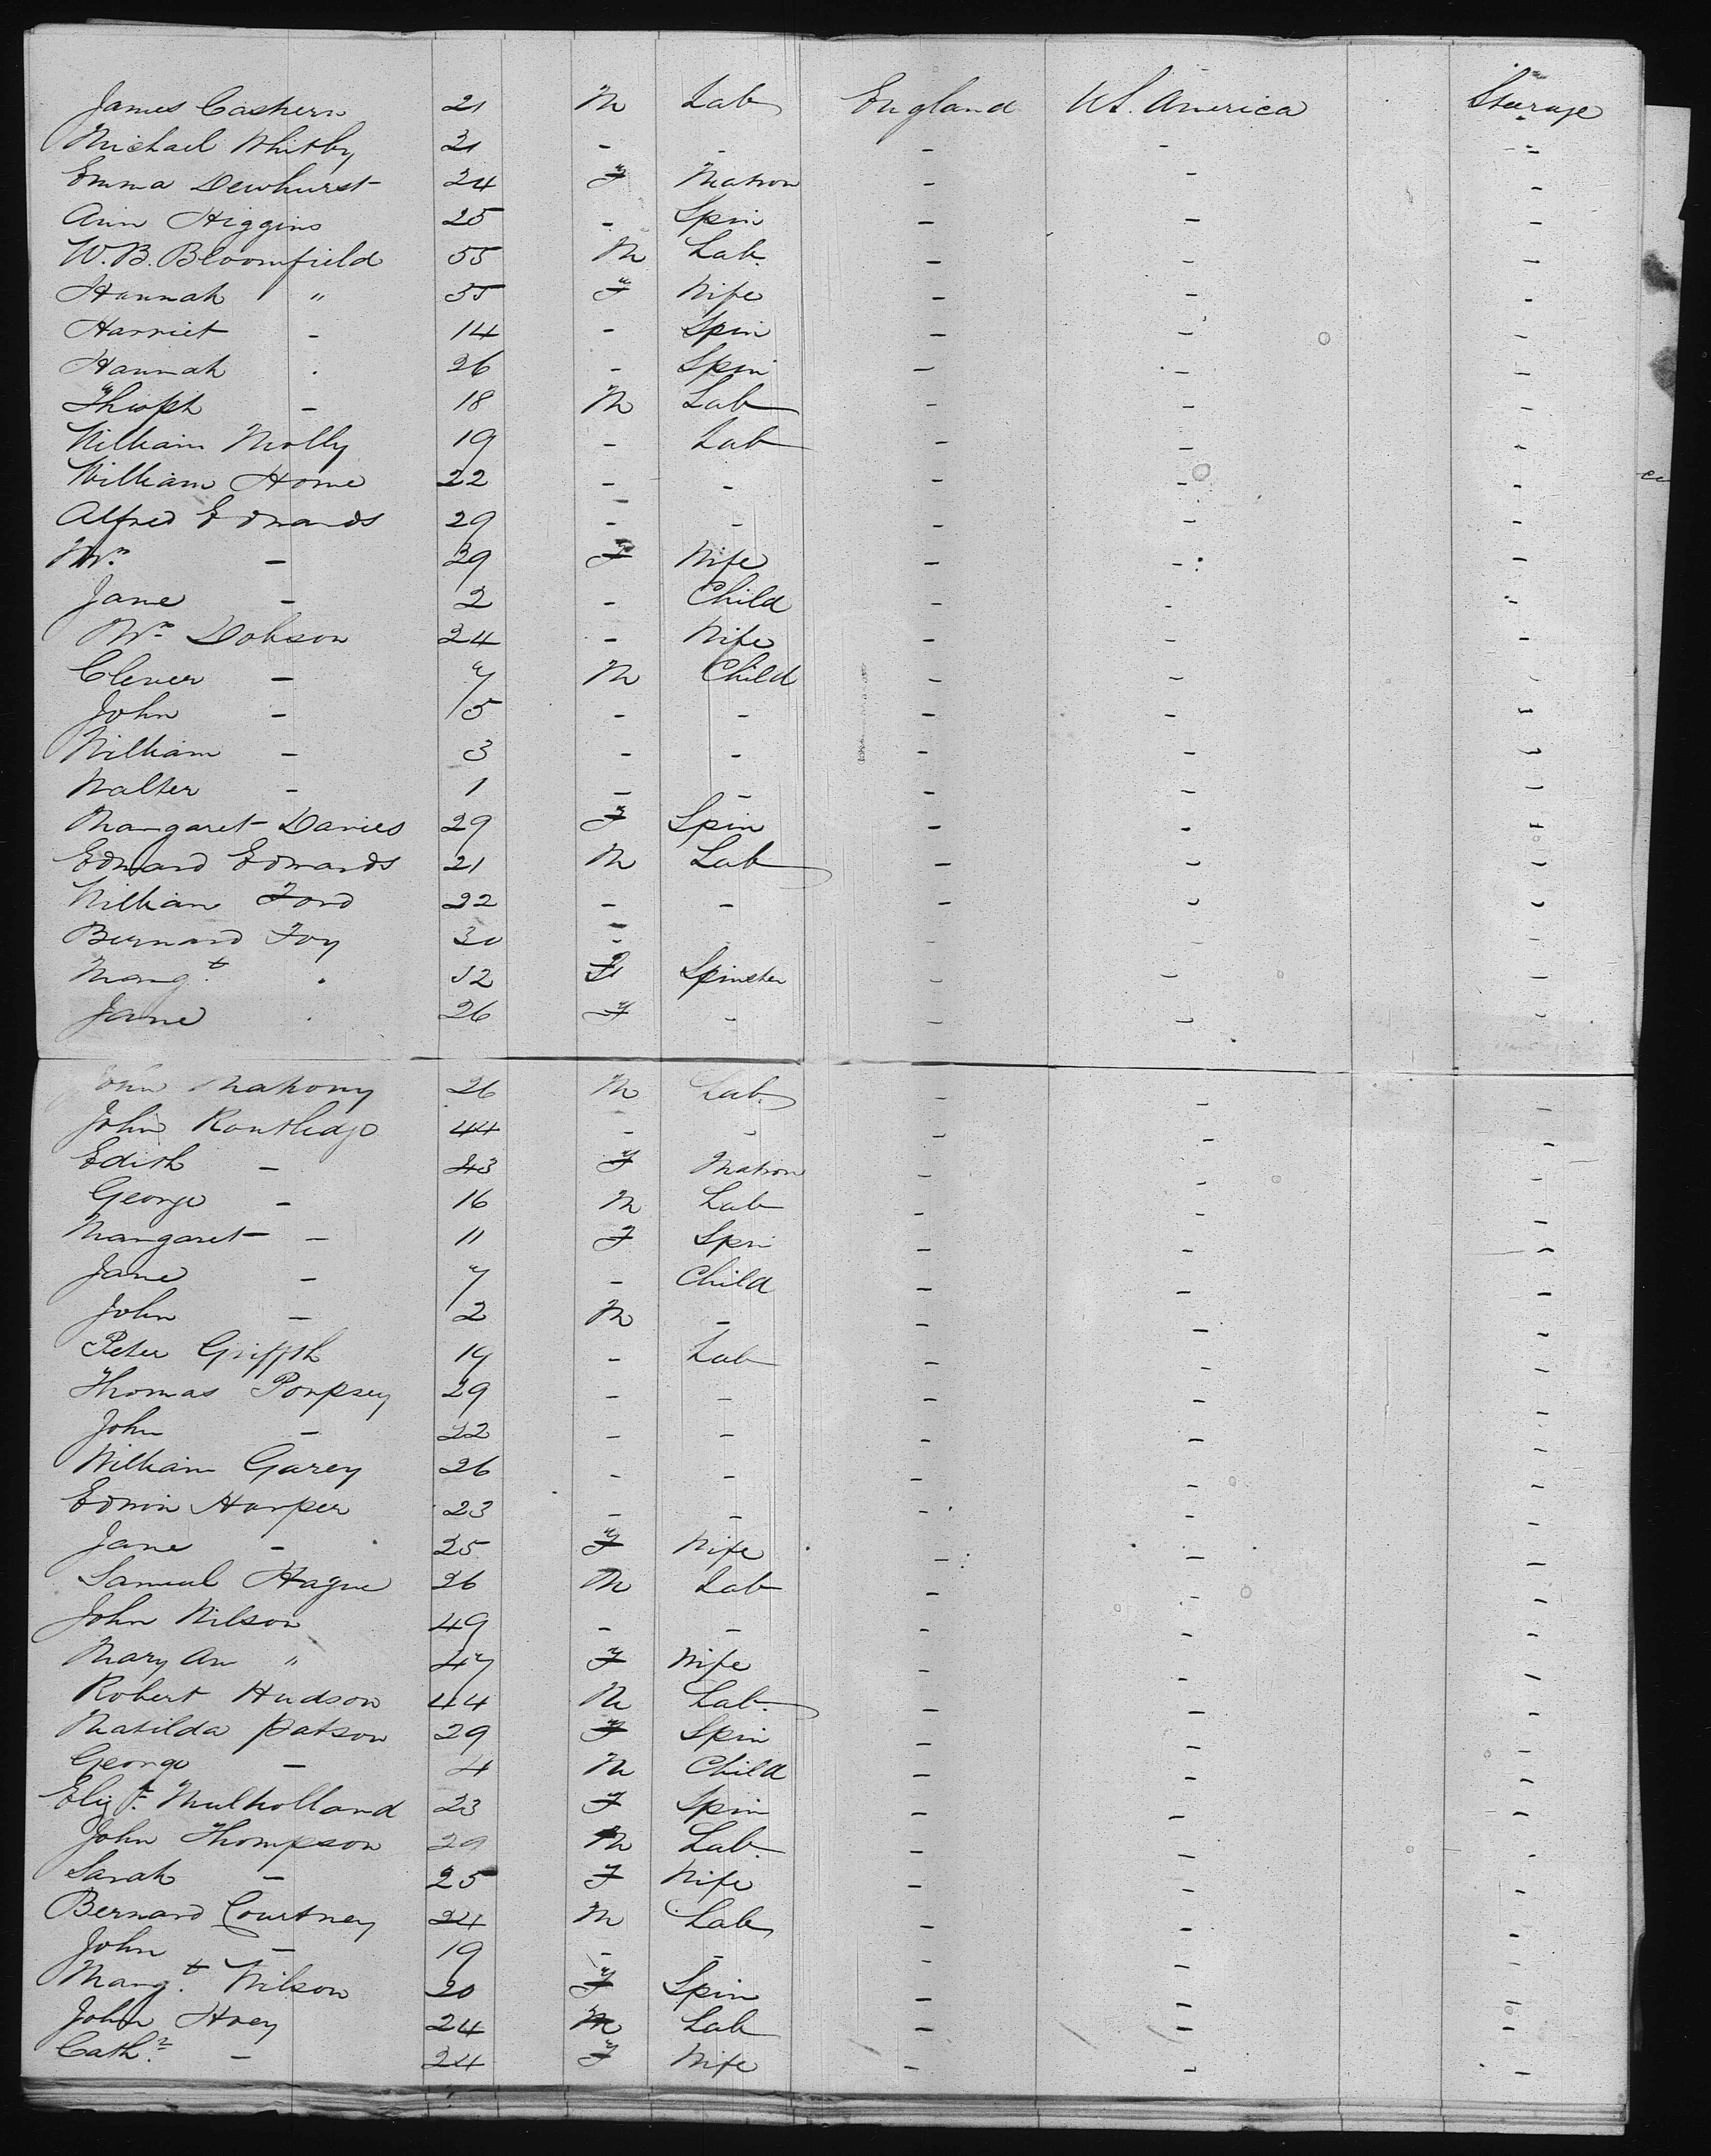 James Cashern 21 M Lab England U.S. America Steerage
Michael Whitby 21 - - - - -
Emma Dewhurst 24 F Matron - - -
Ann Higgins 25 - Spin - - -
W. B. Bloomfield 55 M Lab. - - -
Hannah " 55 F Wife - - -
Harriet - 14 - Spin - - -
Hannah . 26 - Spin - - -
- 18 M Lab - - -
William Molly 19 - Lab - - -
William Horne 22 - - - - -
Alfred Edwards 29 - - - - -
Mrs. - 39 F Wife - - -
Jane - 2 - Child - - -
Mrs Dobson 24 - Wife - - -
- 7 M Child - - -
John - 5 - - - - -
William - 3 - - - - -
Walter - 1 - - - - -
Margaret Davies 29 F Spin - - -
Edward Edwards 21 M Lab - - -
William Ford 22 - - - - -
Bernard Foy 30 - - - - -
Margt. . F Spinster - - -
Jane . 26 F - - - -
John Mahony 26 M Lab. - - -
John Routledge 44 - - - - -
Edith - 43 F Matron - - -
George - 16 M Lab - - -
Margaret - 11 F Spin - - -
Jane - 7 - Child - - -
John - 2 M - - - -
Peter Griffth 19 - Lab - - -
Thomas Porpsey 29 - - - - -
John - 22 - - - - -
William Garey 26 - - - - -
Edwin Harper 23 - - - - -
Jane - 25 F Wife - - -
Samuel Hague 26 M Lab - - -
John Wilson 49 - - - - -
Mary An " 47 F Wife - - -
Robert Hudson 44 M Lab. - - -
Matilda Patson 29 F Spin - - -
George - 4 M Child - - -
Elizt. Mulholland 23 F Spin - - -
John Thompson 29 M Lab. - - -
Sarah - 25 F Wife - - -
Bernard Courtney 24 M Lab - - -
John - 19 - - - - -
Margt. Wilson 20 F Spin - - -
John Hoey 24 M Lab - - -
Cathn. - 24 F Wife - - -